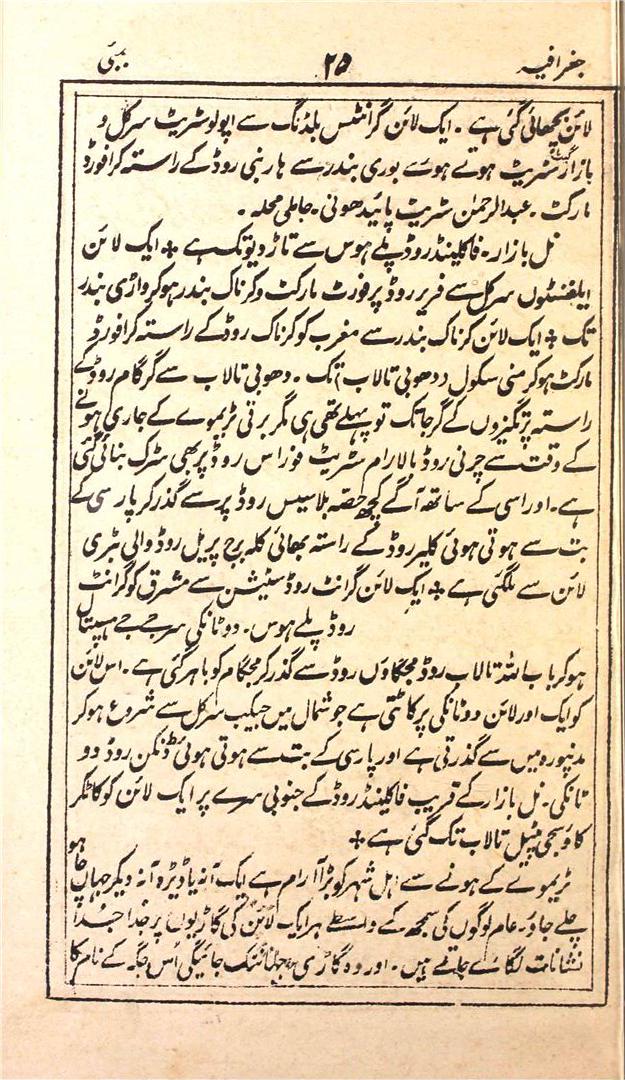 جغرافیہ ۲۵ بمبئی
لائن بچھائی گئی ہے ۔ ایک لائن گرانٹس بلڈنگ سے اپولو سٹریٹ سرکل و
بازار گیٹ سٹریٹ ہوتے ہوے بوری بندر سے ہاربنی روڈ کے راستہ کرافورڈ
مارکٹ ۔ عبدالرحمٰن سٹریٹ پائیدھونی ۔ جاملی محلہ ۔
نل بازار ۔ فاکلینڈ روڈ پلے ہوس سے تاڑدیو تک ہے + ایک لائن
ایلفنسٹون سرکل سے فریر روڈ پر فورٹ مارکٹ و کرناک بندر ہوکر واڑی بندر
تک + ایک لائن کرناک بندر سے مغرب کو کرناک روڈ کے راستہ کرافورڈ
مارکٹ ہوکر منی سکول و دھوبی تالاب تک ۔ دھوبی تالاب سے گرگام روڈ کے
راستہ پرتگیزوں کے گرجا تک تو پہلے تھی ہی مگر برقی ٹریموے کے جاری ہونے
کے وقت سے چرنی روڈ بالارام سٹریٹ فوراس روڈ پر بھی سڑک بنائی گئی
ہے ۔ اور اسی کے ساتھ آگے کچھ حصہ بلاسیس روڈ پر سے گذر کر پارسی کے
بت سے ہوتی ہوئی کلیر روڈ کے راستہ بھائی کلہ برج پریل روڈ والی پٹری
لائن سے ملگئی ہے + ایک لائن گرانٹ روڈ سٹیشن سے مشرق کو گرانٹ
روڈ پلے ہوس ۔ دو ٹانکی سر جے جے ہسپتال
ہوکر باب اللہ تالاب روڈ مجگاؤں روڈ سے گذر کر مجگام کو باہر گئی ہے ۔ اس لائن
کو ایک اور لائن دو ٹانکی پر کاٹتی ہے جو شمال میں جیکب سرکل سے شروع ہوکر
مدنپورہ میں سے گذرتی ہے اور پارسی کے بت سے ہوتی ہوئی ڈنکن روڈ دو
ٹانکی ۔ نل بازار کے قریب فاکلینڈ روڈ کے جنوبی سرے پر ایک لائن کو کاٹکر
کاوسجی پٹیل تالاب تک گئی ہے +
ٹریموے کے ہونے سے اہل شہر کو بڑا آرام ہے ایک آنہ یا ڈیڑہ آنہ دیکر جہاں چاہو
چلے جاؤ ۔ عام لوگوں کی سمجھ کے واسطے ہر ایک لائن کی گاڑیوں پر جدا جدا
نشانات لگائے جاتے ہیں ۔ اور وہ گاڑی جہانتک جائیگی اُس جگہ کے نام کا